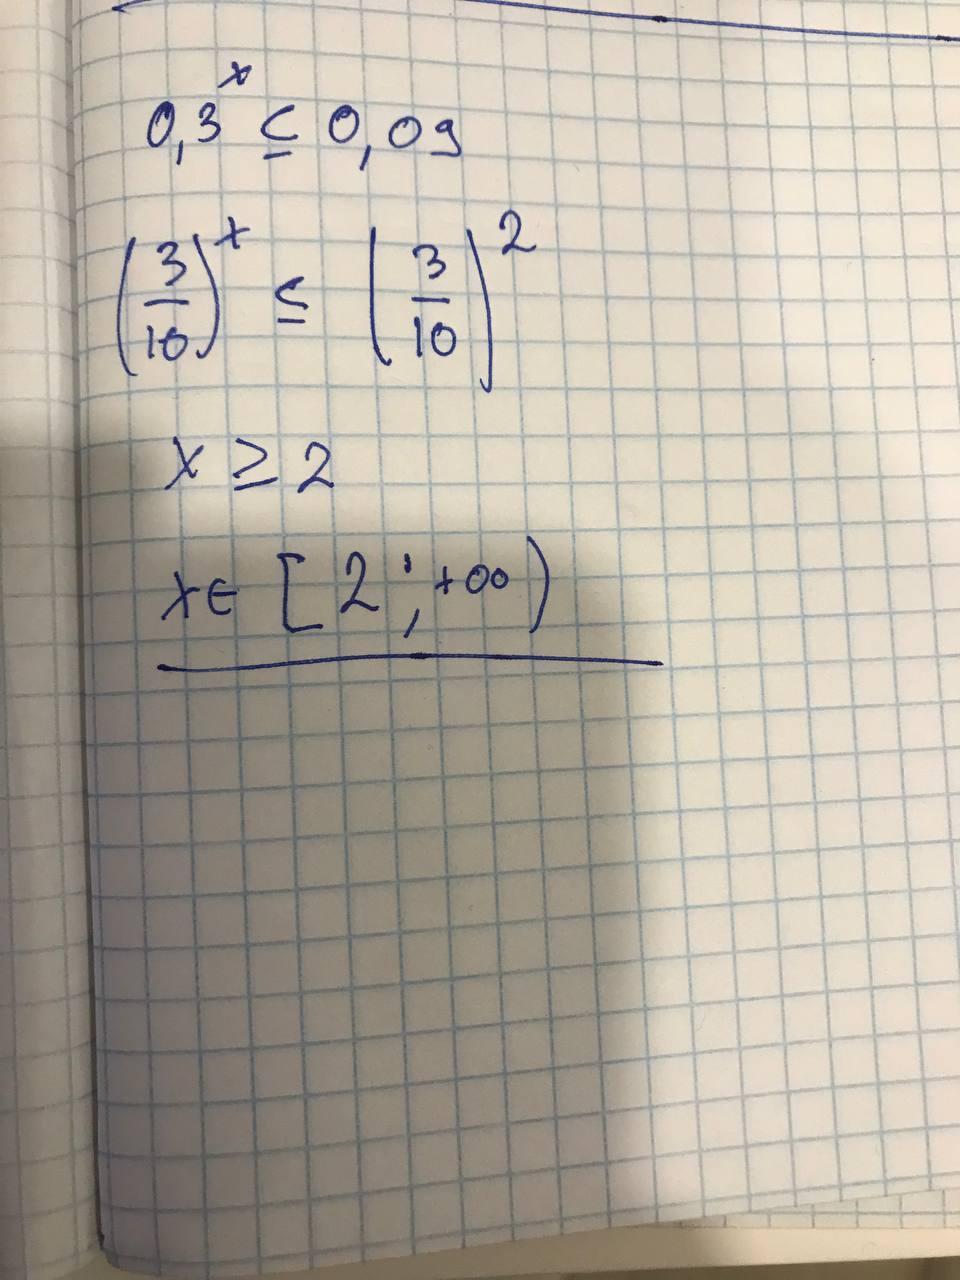 0,3^x ≤ 0,09
(3/10)^x ≤ (3/10)^2
x ≥ 2
x ∈ [2; +∞)